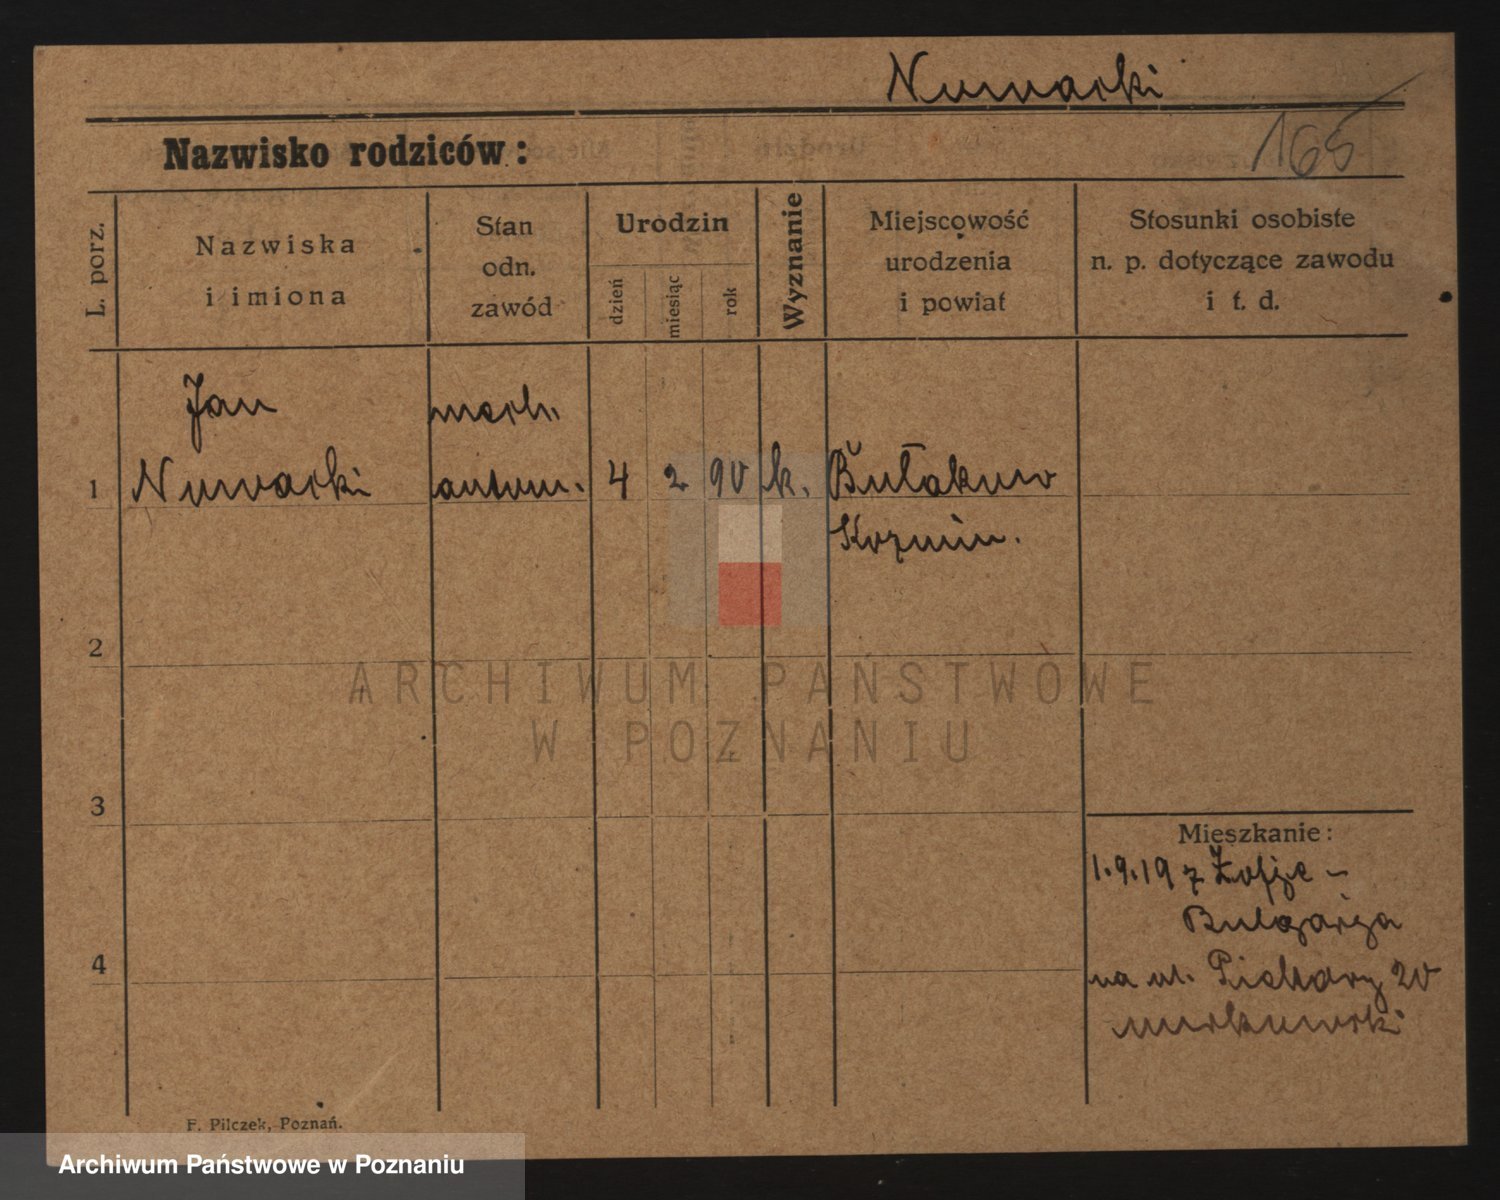 Nowacki
Nazwisko rodziców:
165
L. porz.
Nazwiska
i imiona
Stan
odn.
zawód
Urodzin
dzień
miesiąc
rok
Wyznanie
Miejscowość
urodzenia
i powiat
Stosunki osobiste
n. p. dotyczące zawodu
i t. d.
Jan mech.
1 Nowacki autom. 4 2 90 k. Bułakow
Kozmin.
2
ARCHIWUM PAŃSTWOWE
W POZNANIU
3
Mieszkanie:
1.9.19 z Zofje -
Bulgarja
4
na ul. Piekary 20
F. Pilczek, Poznań.
Archiwum Państwowe w Poznaniu